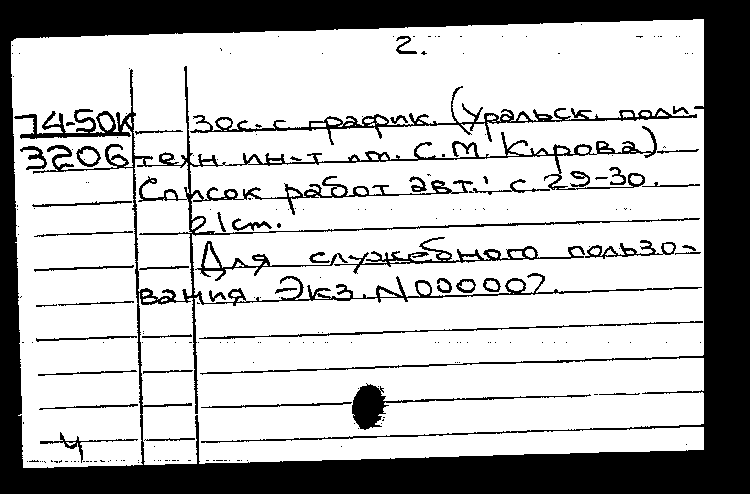 2.
74-50К 30с. с график. (Уральск. поли-
3206 техн. ин-т им. С.М. Кирова).
Список работ авт.: с. 29-30.
21cm.
Для служебного пользо-
вания. Экз. N000007.
Ч